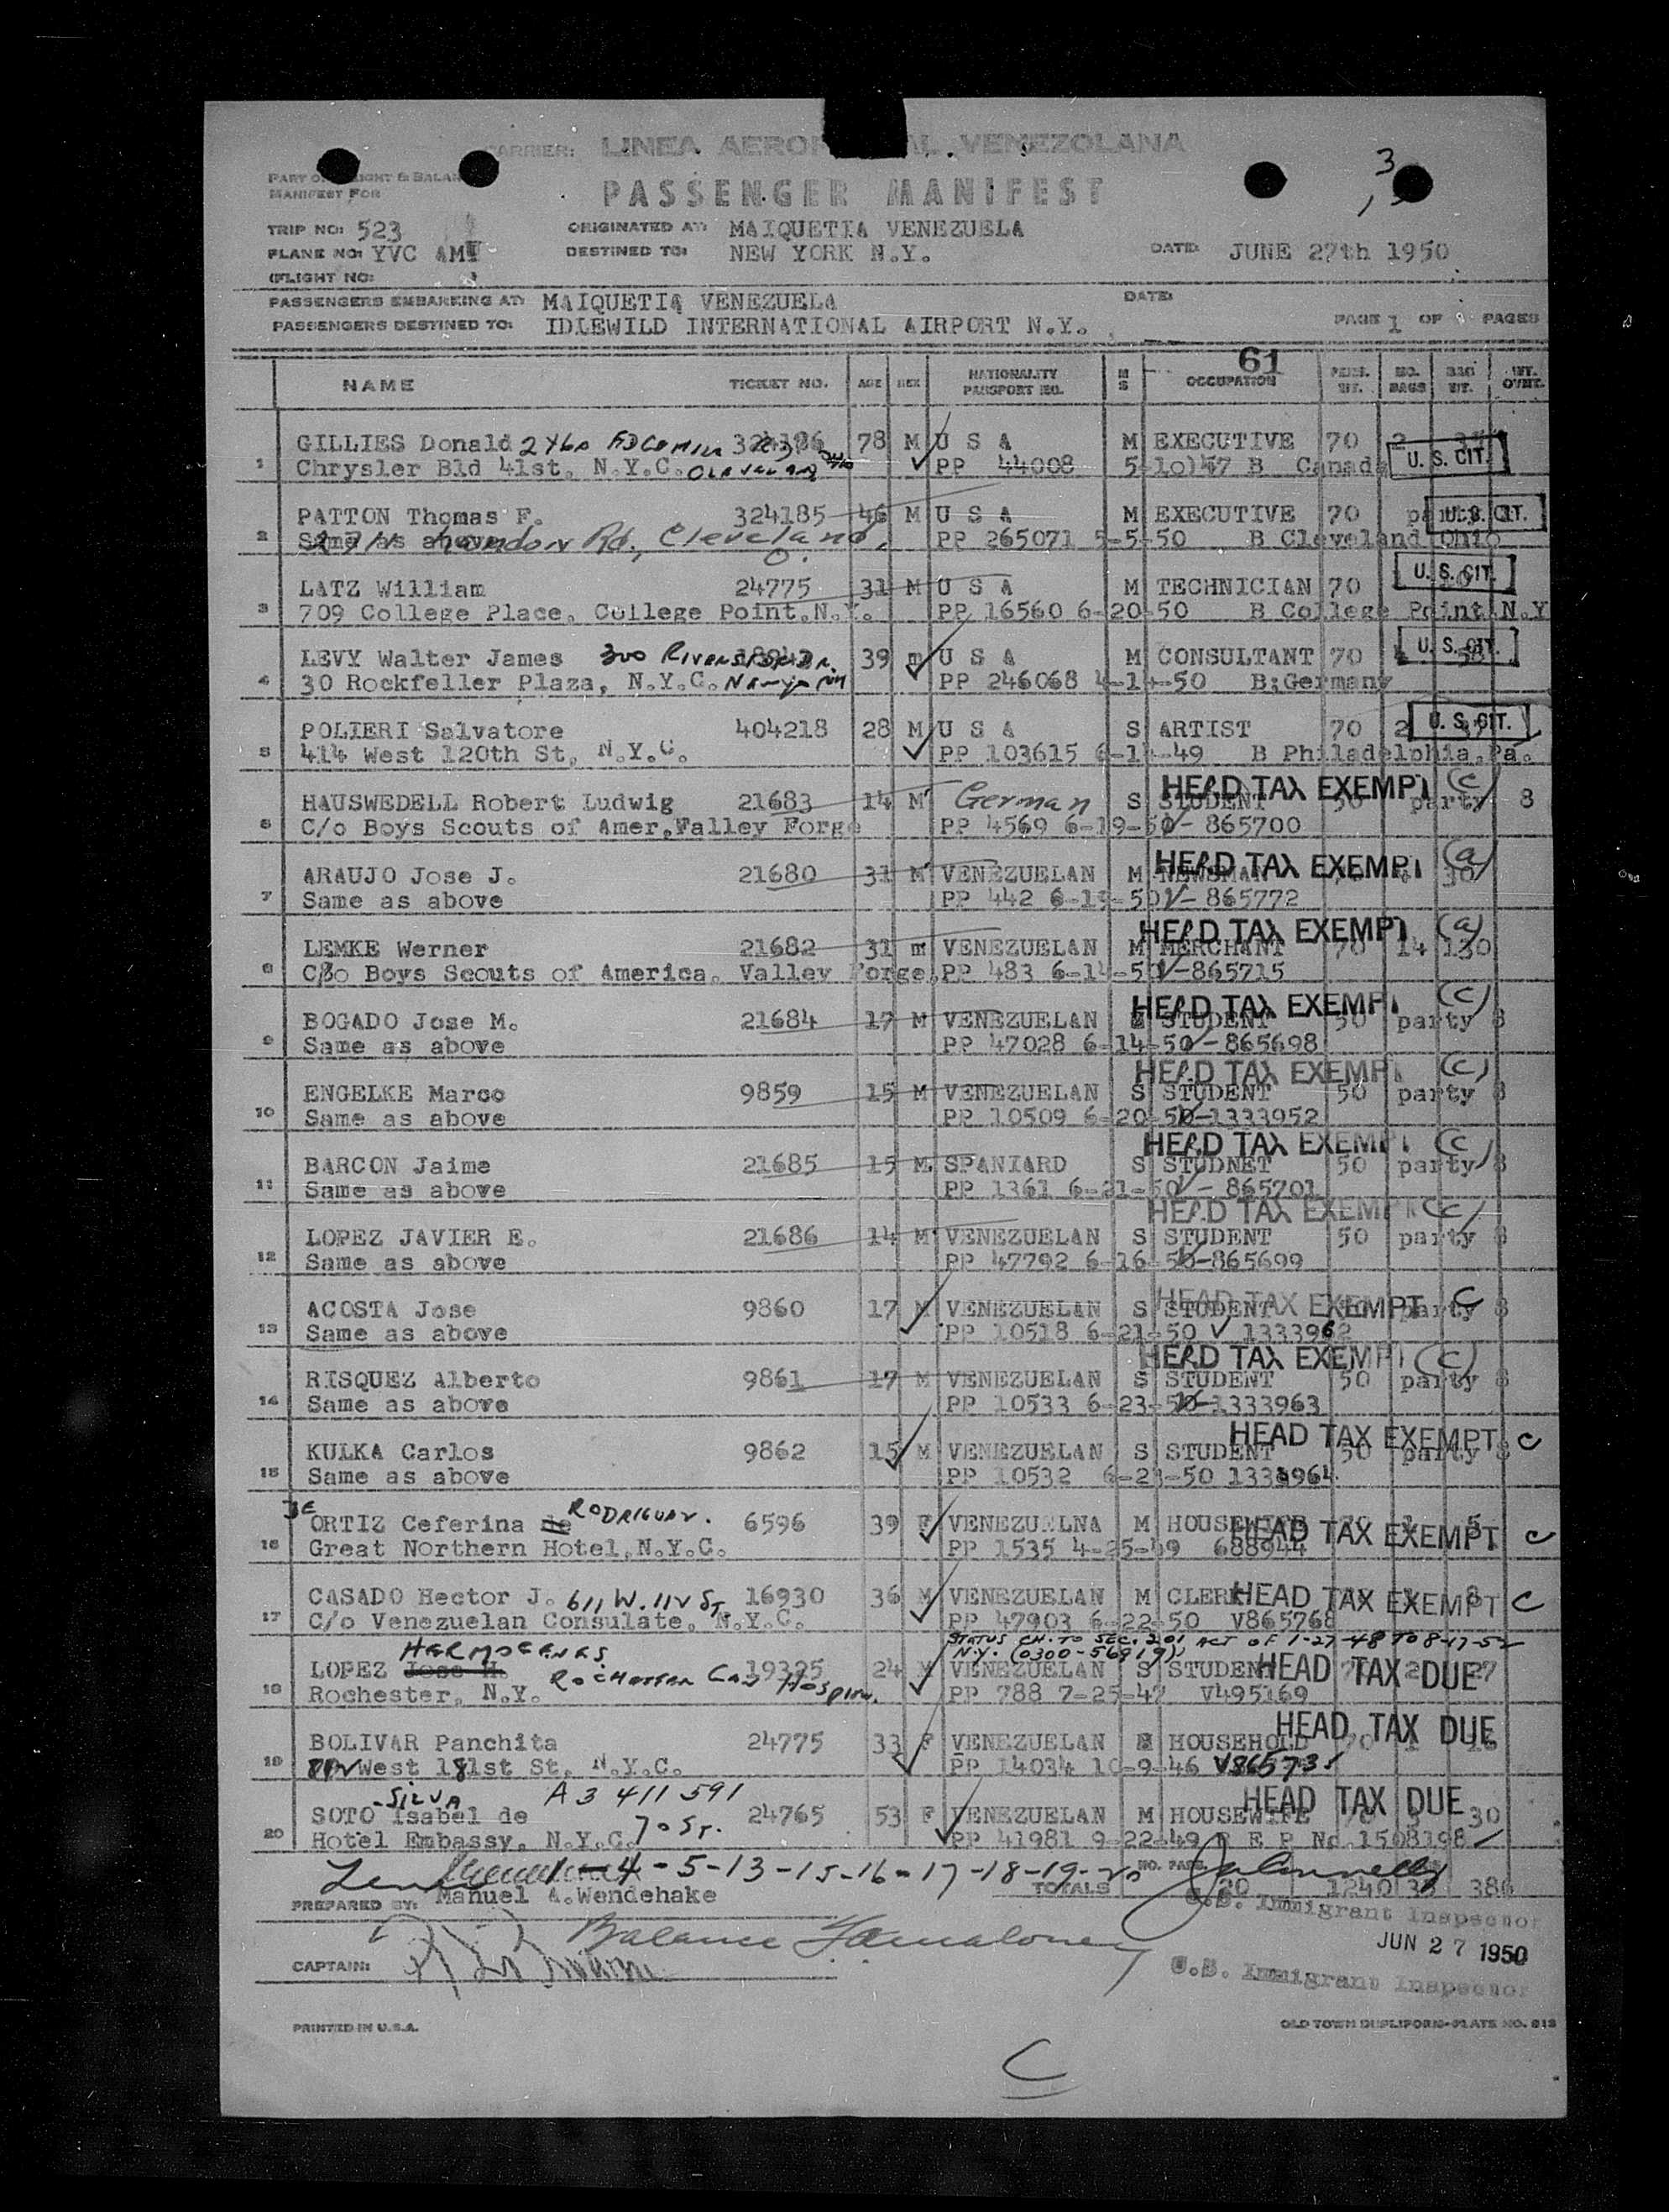 CARRIER: LINEA AERO AL VENEZOLANA
3
PART O IGHT & BALAN
MANIFEST FOR
PASSENGER MANIFEST
TRIP NO: 523 ORIGINATED AT: MAIQUETIA VENEZUELA
PLANE NO: YVC AM DESTINED TO: NEW YORK N.Y. DATE: JUNE 27th 1950
(FLIGHT NO:
PASSENGERS EMBARKING AT: MAIQUETIA VENEZUELA DATE:
PASSENGERS DESTINED TO: IDLEWILD INTERNATIONAL AIRPORT N.Y. PAGE 1 OF PAGES
61
NAME TICKET NO. AGE SEX NATIONALITY PASSPORT NO. M S OCCUPATION PERS. WT. NO. BAGS BAG WT. WT. OVHT.
GILLIES Donald 2460 324186 78 M U S A M EXECUTIVE 70 2
1 Chrysler Bld 41st, N.Y.C. PP 44008 5-10-47 B Canada U. S. CIT.
PATTON Thomas F. 324185 46 M U S A M EXECUTIVE 70 U. S. CIT.
2 Same as above Rd, Cleveland, O. PP 265071 5-5-50 B Cleveland Ohio
LATZ William 24775 31 M U S A M TECHNICIAN 70 U. S. CIT.
3 709 College Place, College Point.N.Y. PP 16560 6-20-50 B College Point N.Y
LEVY Walter James 300 Riverside Dr. 39 m U S A M CONSULTANT 70 U. S. CIT.
4 30 Rockfeller Plaza, N.Y.C. PP 246068 4-14-50 B:Germany
POLIERI Salvatore 404218 28 M U S A S ARTIST 70 2 U. S. CIT.
5 414 West 120th St, N.Y.C. PP 103615 6-14-49 B Philadelphia.Pa.
HAUSWEDELL Robert Ludwig 21683 14 M German S STUDENT 50 party 8 HEAD TAX EXEMPT (c)
6 C/o Boys Scouts of Amer,Valley Forge PP 4569 6-19-50 V- 865700
ARAUJO Jose J. 21680 31 M VENEZUELAN M NEWSMAN 30 HEAD TAX EXEMPT (a)
7 Same as above PP 442 6-19-50 V- 865772
LEMKE Werner 21682 31 m VENEZUELAN M MERCHANT 70 14 130 HEAD TAX EXEMPT (a)
8 C/o Boys Scouts of America, Valley Forge, PP 483 6-14-50 V-865715
BOGADO Jose M. 21684 17 M VENEZUELAN S STUDENT 50 party 8 HEAD TAX EXEMPT (c)
9 Same as above PP 47028 6-14-50 V-865698
ENGELKE Marco 9859 15 M VENEZUELAN S STUDENT 50 party 8 HEAD TAX EXEMPT (c)
10 Same as above PP 10509 6-20-50 V-1333952
BARCON Jaime 21685 15 M SPANIARD S STUDNET 50 party 8 HEAD TAX EXEMPT (c)
11 Same as above PP 1361 6-21-50 V - 865701
LOPEZ JAVIER E. 21686 14 M VENEZUELAN S STUDENT 50 party 8 HEAD TAX EXEMPT (c)
12 Same as above PP 47792 6-16-50 V-865699
ACOSTA Jose 9860 17 M VENEZUELAN S STUDENT party 8 HEAD TAX EXEMPT C
13 Same as above PP 10518 6-21-50 V 1333962
RISQUEZ Alberto 9861 17 M VENEZUELAN S STUDENT 50 party 8 HEAD TAX EXEMPT (c)
14 Same as above PP 10533 6-23-50 V-1333963
KULKA Carlos 9862 15 M VENEZUELAN S STUDENT 50 party 8 HEAD TAX EXEMPT C
15 Same as above PP 10532 6-23-50 1333964
DE ORTIZ Ceferina de RODRIGUEZ. 6596 39 F VENEZUELNA M HOUSEWIFE 5 HEAD TAX EXEMPT C
16 Great Northern Hotel,N.Y.C. PP 1535 4-25-49 688944
CASADO Hector J. 611 W. 112 ST 16930 36 M VENEZUELAN M CLERK 8 HEAD TAX EXEMPT C
17 C/o Venezuelan Consulate, N.Y.C. PP 47903 6-22-50 V865768
HERMOGENES STATUS CH. TO SEC. 201 ACT OF 1-27-48 TO 8-17-52
N.Y. (0300-56919)
LOPEZ Jose H. 19395 24 M VENEZUELAN S STUDENT 2 27 HEAD TAX DUE
18 Rochester, N.Y. PP 788 7-25-47 V495169
BOLIVAR Panchita 24775 33 F VENEZUELAN HOUSEHOLD HEAD TAX DUE
19 West 181st St, N.Y.C. PP 14034 10-9-46 V865735
- SILVA A3 411 591
SOTO Isabel de 24765 53 F VENEZUELAN M HOUSEWIFE 30 HEAD TAX DUE
20 Hotel Embassy, N.Y.C. 70 ST. PP 41981 9-22-49 R E P No.1508198
4 - 5 - 13 - 15 - 16 - 17 - 18 - 19 - 20 NO. PASS.
PREPARED BY: Manuel A.Wendehake TOTALS 20 1240 386
U.S. Immigrant Inspector
Balance
JUN 27 1950
CAPTAIN:
U.S. Immigrant Inspector
PRINTED IN U.S.A. OLD TOWN DUPLIFORM-PLATE NO. 813
C